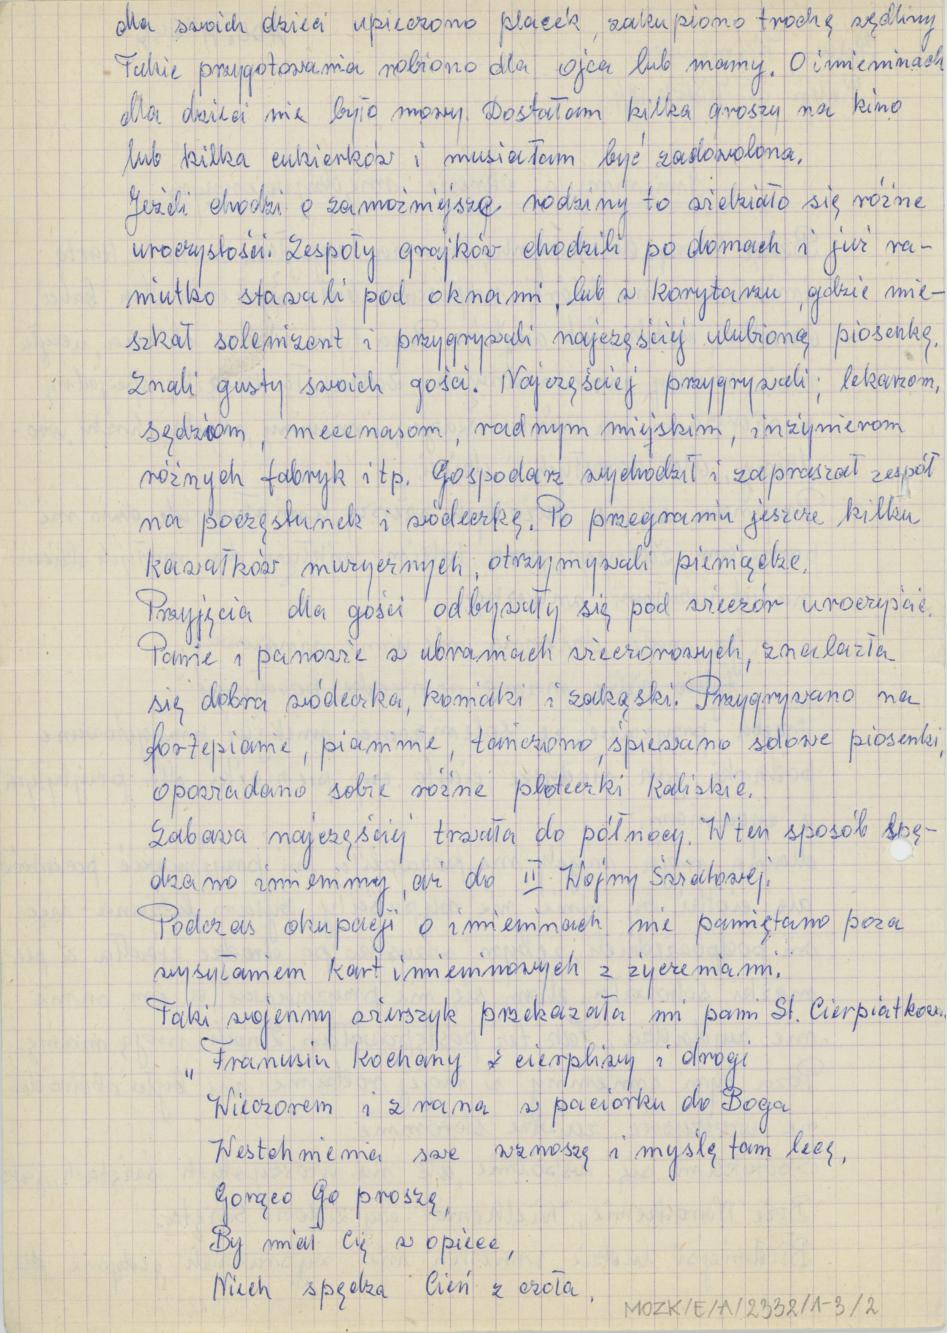 dla swoich dzieci upieczono placek, zakupiono trochę wędliny
Takie przygotowania robiono dla ojca lub mamy. O imieninach
dla dzieci nie było mowy. Dostałam kilka groszy na kino
lub kilka cukierków i musiałam być zadowolona.
Jeżeli chodzi o zamożniejsze rodziny to widziało się różne
uroczystości. Zespoły grajków chodzili po domach i już ra-
niutko stawali pod oknami, lub w korytarzu, gdzie mie-
szkał solenizant i przygrywali najczęściej ulubioną piosenkę.
Znali gusty swoich gości. Najczęściej przygrywali; lekarzom,
sędziom, mecenasom, radnym miejskim, inżynierom
różnych fabryk itp. Gospodarz wychodził i zapraszał zespół
na poczęstunek i wódeczkę. Po przegraniu jeszcze kilku
kawałków muzycznych, otrzymywali pieniądze.
Przyjęcia dla gości odbywały się pod wieczór uroczyście.
Panie i panowie w ubraniach wieczorowych, znalazła
się dobra wódeczka, koniaki i zakąski. Przygrywano na
fortepianie, pianinie, tańczono, śpiewano solowe piosenki,
opowiadano sobie różne ploteczki kaliskie.
Zabawa najczęściej trwała do północy. W ten sposób spę-
dzano imieniny, aż do II Wojny Światowej.
Podczas okupacji o imieninach nie pamiętano poza
wysyłaniem kart imieninowych z życzeniami.
Taki wojenny wierszyk przekazała mi pani St. Cierpiatkow.
„Franusiu kochany ż cierpliwy i drogi
Wieczorem i z rana w paciorku do Boga
Westchnienia swe wznoszę i myślę tam lecę,
Gorąco Go proszę,
By miał Cię w opiece,
Niech spędza Cień z czoła.
MOZK/E/A/2332/1-3/2